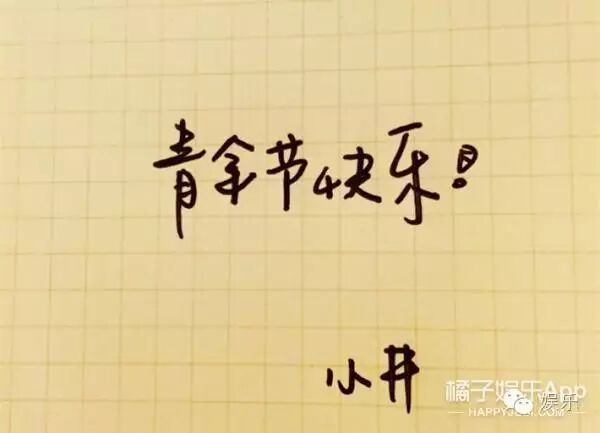 青年节快乐!
小井
橘子娱乐App
娱乐